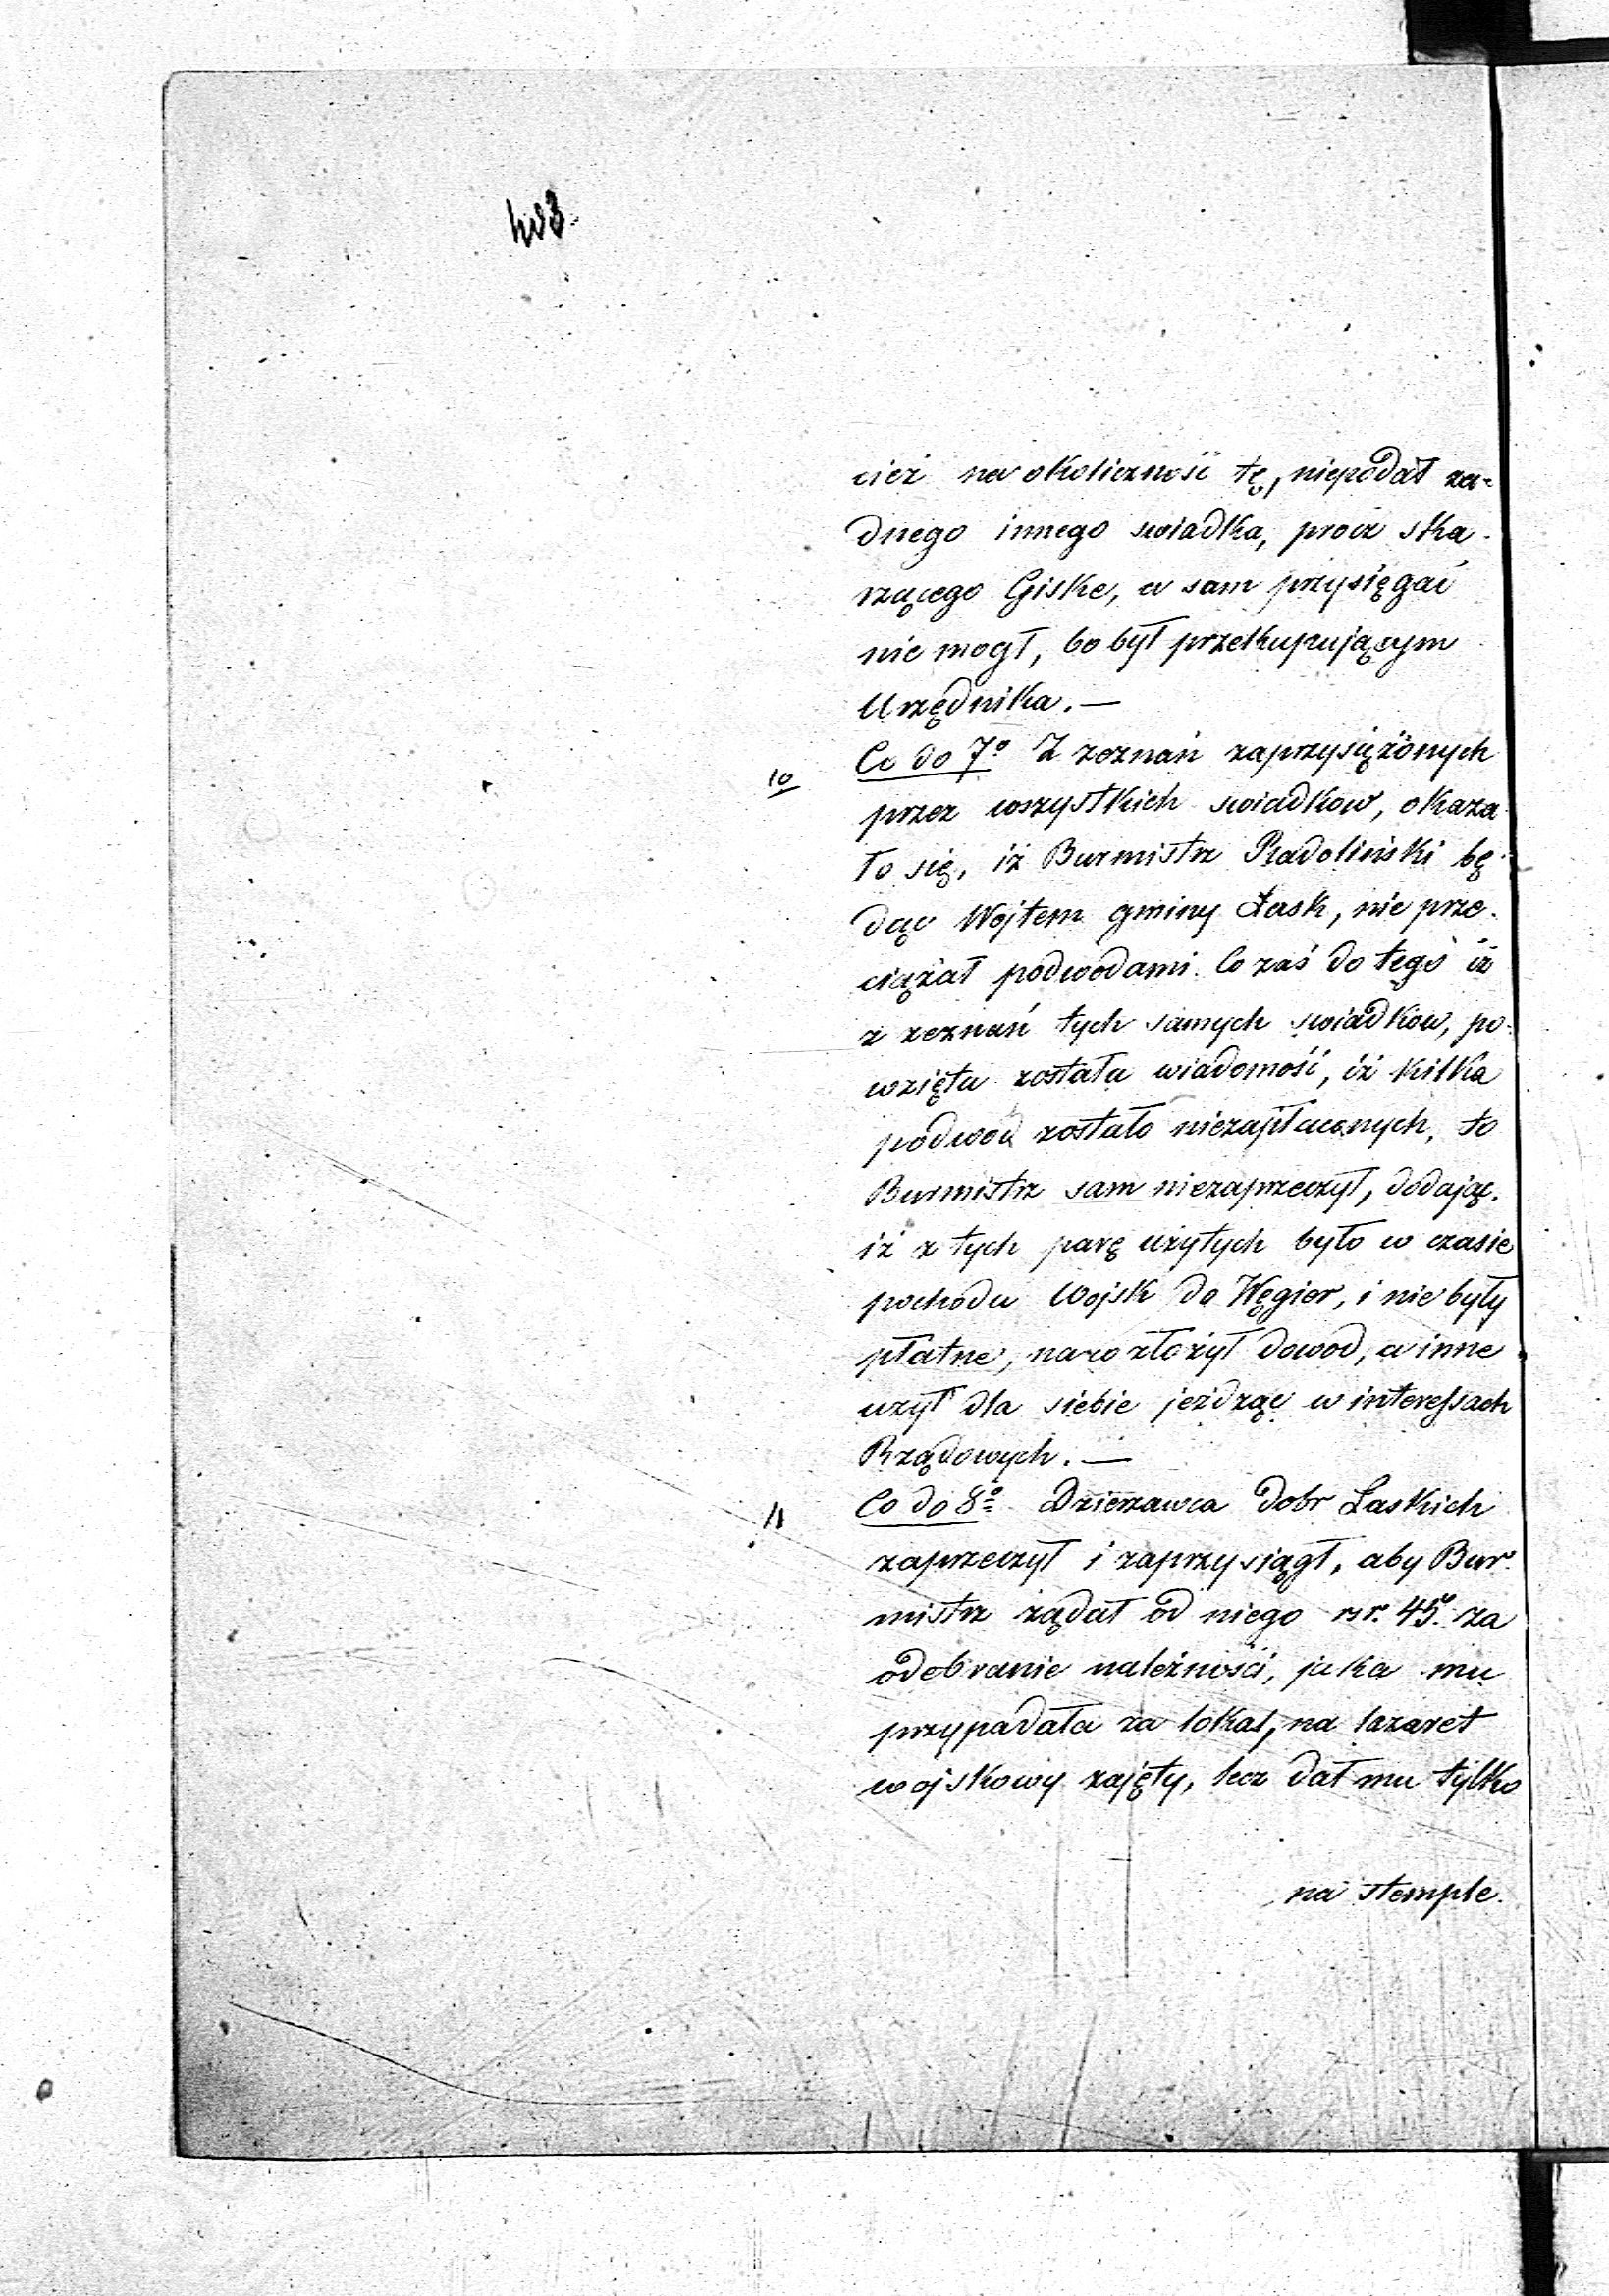 cież na okoliczność tę, niepodał ża-
dnego innego swiadka, procz ska-
rzącego Giske, a sam przysięgać
nie mogł, bo był przekupującym
Urzędnika. —
10
Co do 7º Z zeznań zaprzysiężonych
przez wszystkich swiadkow, okaza
ło się, iż Burmistrz Radoliński bę-
dąc Wojtem gminy Łask, nie prze-
ciążał podwodami. Co zaś do tego iż
z zeznań tych samych swiadkow, po-
wzięta została wiadomość, iż kilka
podwod zostało niezapłaconych, to
Burmistrz sam niezaprzeczył, dodając.
iż z tych parę użytych było w czasie
pochodu Wojsk do Węgier, i nie były
płatne, na co złożył dowod, a inne
użył dla siebie jeżdżąc w interessach
Rządowych. —
11
Co do 8º Dzierzawca dobr Łaskich
zaprzeczył i zaprzysiągł, aby Bur-
mistrz żądał od niego rsr. 45. za
odebranie należności, jaka mu
przypadała za lokal, na lazaret
wojskowy zajęty, lecz dał mu tylko
na stemple.